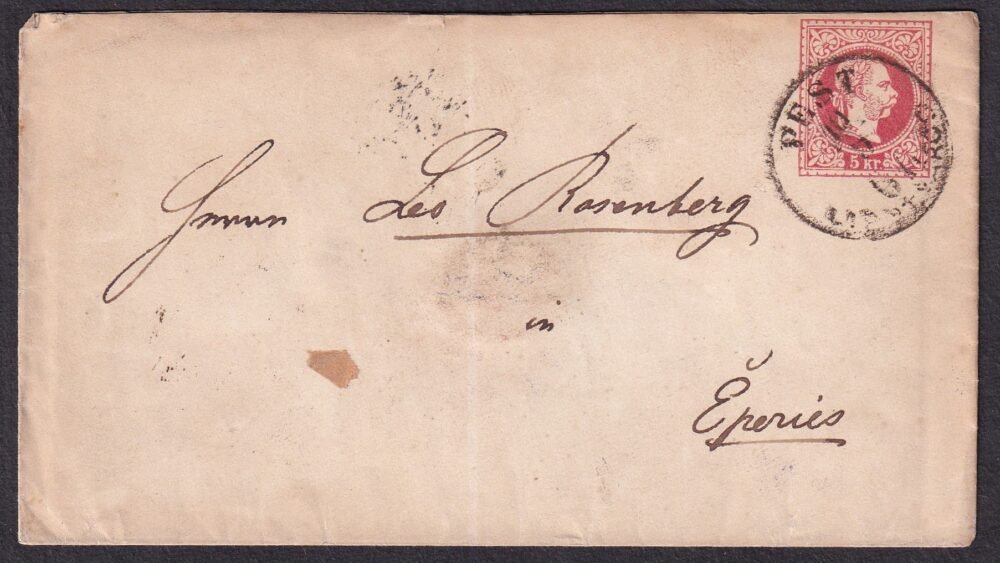 PEST
5 kr.
Herrn Leo Rosenberg
in
Eperiés